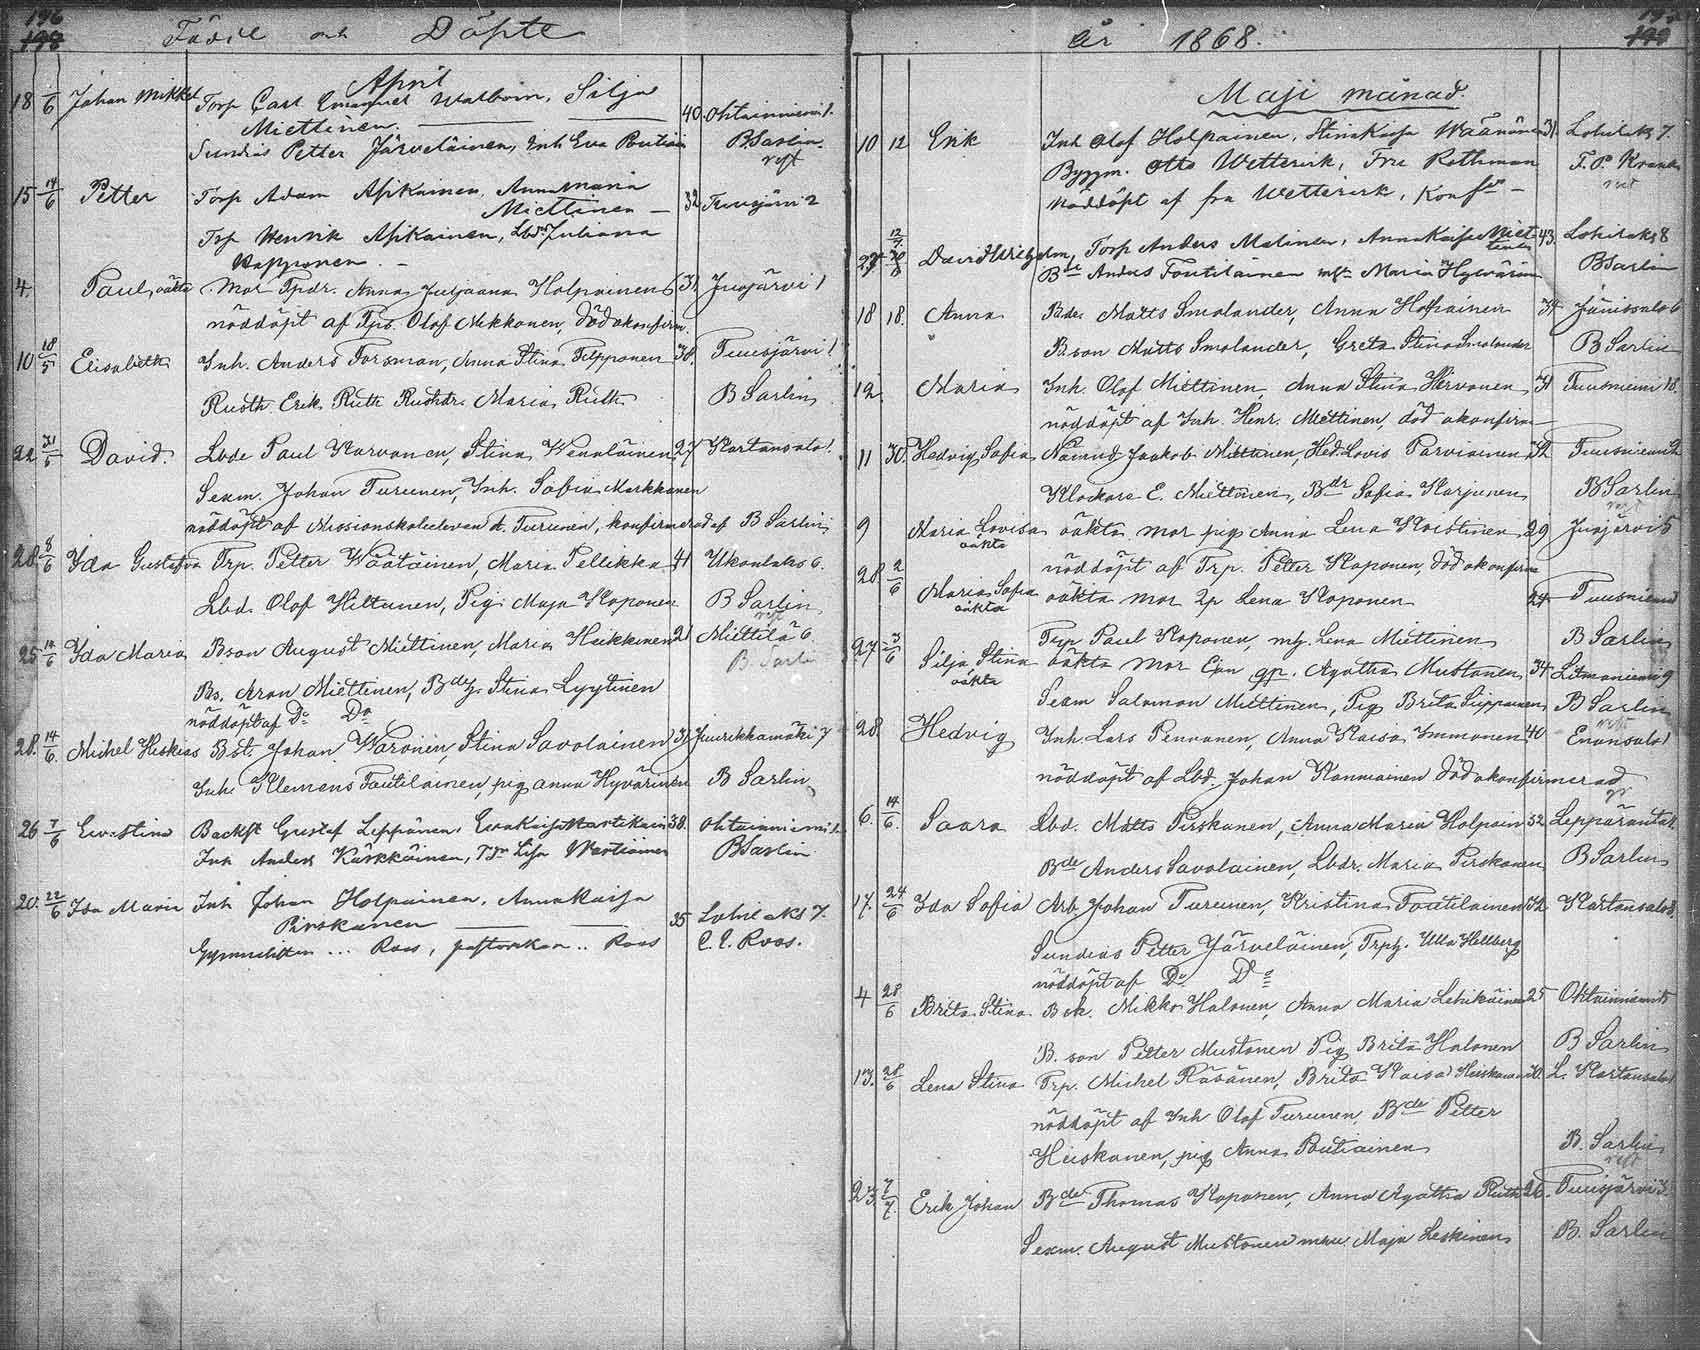 196
198
Födde och Döpte
April
18 /6 Johan Mikkel Torp Carl Emanuel Walbom, Silja 40. Ohtainniemi 1.
Miettinen.
Sundias Petter Järveläinen, Inh Eva Poutiain B Sarlin
15 14/6 Petter Torp Adam Asikainen, Anna Maria 32 Tuusjärvi 2
Miettinen
Trp Henrik Asikainen, Lbdr Juliana
Happonen
4. Paul, oäkta Mor Tpdr. Anna Juljaana Holpainen 31 Juojärvi 1
nöddöpt af Tps. Olof Mikkonen, död okonfirm.
10 18/5 Elisabeth Inh. Anders Forsman, Anna Stina Filpponen 38. Tuusjärvi 1
Rusth. Erik Ruth Rusthdr. Maria Ruth B Sarlin
22 31/5 David. Lbde Paul Karvonen, Stina Wenäläinen 27 Kartansalo 1.
Sexm. Johan Turunen, Inh. Sofia Markkanen
nöddöpt af Missionskoleleven A. Turunen, konfirmerad af B Sarlin
28. 8/6 Ida Gustafva Trp. Petter Wäätäinen, Maria Pellikka 41 Ukonlaks 6.
Lbd. Olof Hiltunen, Pig. Maja Koponen B Sarlin
25 14/6 Ida Maria Bson August Miettinen, Maria Heikkinen 21 Miettilä 6.
B Sarlin
Bs. Aron Miettinen, Bdr Stina Lyytinen
nöddöpt af Do Do
28. 14/6. Michel Heskias Bst. Johan Waronen, Stina Savolainen 31 Juurikkamäki 7
Inh. Klemens Toutilainen, pig Anna Hyvärinen B Sarlin
26 7/6 Eva Stina Backst Gustaf Leppänen, Eva Kaisa Martikain 38. Ohtainniemi
Inh Anders Kärkkäinen, Lisa Wartiainen B Sarlin
20. 22/6 Ida Maria Inh Johan Holpainen, Anna Kaisa
Pirskanen 35 Lohilaks 7.
Gymnasisten ... Roos, pastorskan .. Roos C. E. Roos.
199
år 1868.
Maji månad.
10 12 Erik Inh Olof Holpainen, Stina Kaisa Wäänänen 31. Lohilaks 7.
Byggm. Otto Wetterirk, Fru Rothman
Nöddöpt af fru Wetterirk, Konf
27 David Wilhelm, Torp Anders Malinen, Anna Kaisa Miettinen 43. Lohilaks 8
Bde Anders Toutilainen Maria Hyvärinen B Sarlin
18 18. Anna Bde. Matts Smolander, Anna Holpainen 34 Jänissalo 6
B. son Matts Smolander, Greta Stina Smolander B Sarlin
12. Maria Inh. Olof Miettinen, Anna Stina Hirvonen 31 Tuusniemi 18.
nöddöpt af Inh. Henr. Miettinen, död okonfirm
11 30. Hedvig Sofia Jaakob Miettinen, Hed. Lovis Parviainen 32 Tuusniemi
Klockare E. Miettinen, Bdr Sofia Karjunen B Sarlin
9 Maria Lovisa oäkta mor pig Anna Lena Koistinen 29 Juojärvi 5
oäkta
nöddöpt af Trp. Petter Koponen, död okonfirm
28 2/6 Maria Sofia oäkta mor Lena Koponen 24 Tuusniemi
oäkta
Trp Paul Koponen, Lena Miettinen B Sarlin
27. 3/6 Silja Stina oäkta mor gp. Agatha Mustonen 34 Litmaniemi 9
oäkta
Sexm Salomon Miettinen, Pig Brita Tiippainen B Sarlin
28. Hedvig Inh. Lars Penvanen, Anna Kaisa Immonen 40 Enonsalo 1
nöddöpt af Lbd. Johan Konniainen död okonfirmerad
6. 14/6 Saara Lbd. Matts Pirskanen, Anna Maria Holpain 32 Lepparanta
Bde Anders Savolainen, Lbdr. Maria Pirskanen B Sarlin
17. 24/6 Ida Sofia Arb. Johan Turunen, Kristina Toutilainen 32 Kartansalo
Sundias Petter Järveläinen, Trph. Ulla Hellberg
nöddöpt af Do Do
4 28/6 Brita Stina Bck. Mikko Halonen, Anna Maria Lehikäinen 25 Ohtainniemi
B. son Petter Mustonen Pig Brita Halonen B Sarlin
13. 28/6 Lena Stina Trp. Michel Räsänen, Brita Kaisa Heiskanen L. Kartansalo 1
nöddöpt af Inh Olof Turunen, Bde Petter
Heiskanen, pig Anna Poutiainen B. Sarlin
23. 7/7. Erik Johan Bde Thomas Koponen, Anna Agatha Ruth 26. Tuusjärvi 3.
Sexm. August Mustonen Maja Leskinen B. Sarlin